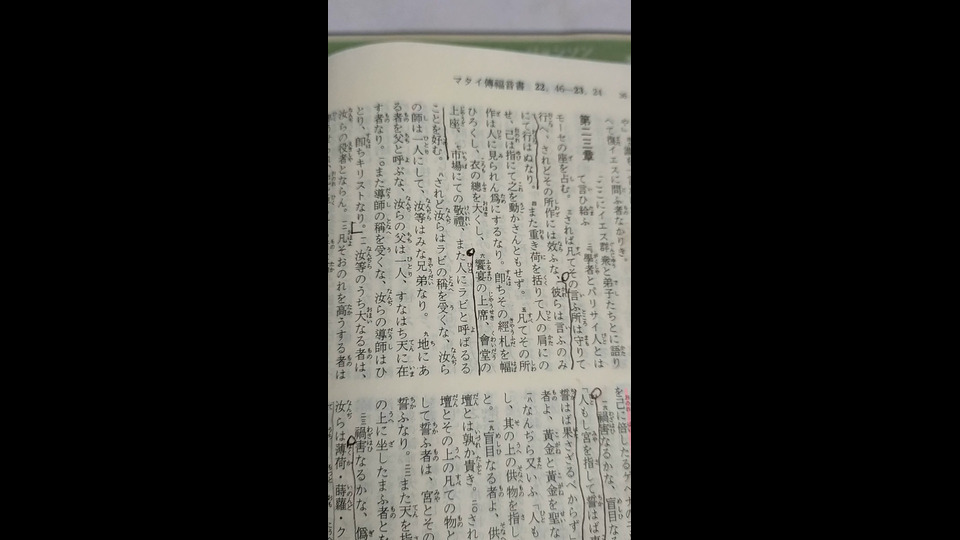 マタイ傳福音書 22, 46—23, 24
36
へて復イエスに問ふ者なかりき。
第二三章
ここにイエス群衆と弟子たちとに語り
て言ひ給ふ 二『學者とパリサイ人とは
モーセの座を占む。 三されば凡てその言ふ所は守りて
行へ、されどその所作には效ふな、彼らは言ふのみ
にて行はぬなり。 四また重き荷を括りて人の肩にの
せ、己は指にて之を動かさんともせず。 五凡てその所
作は人に見られん爲にするなり。即ちその經札を幅
ひろくし、衣の總を大くし、 六饗宴の上席、會堂の
上座、 市場にての敬禮、また人にラビと呼ばるる
ことを好む。 八されど汝らはラビの稱を受くな、汝ら
の師は一人にして、汝等はみな兄弟なり。 九地にあ
る者を父と呼ぶな、汝らの父は一人、すなはち天に在
す者なり。 一〇また導師の稱を受くな、汝らの導師はひ
とり、即ちキリストなり。 一一汝等のうち大なる者は、
汝らの役者とならん。 一二凡そおのれを高うする者は
を己に倍したるゲヘナの
禍害なるかな、盲目な
「人もし宮を指して誓はば
誓はば果さざるべからず」
者よ、黄金と黄金を聖な
一八なんぢら又いふ「人も
し、其の上の供物を指し
と。 一九盲目なる者よ、供
壇とは孰か貴き。 二〇され
壇とその上の凡ての物と
して誓ふ者は、宮とその
誓ふなり。 二二また天を指
の上に坐したまふ者と
二三禍害なるかな、僞
汝らは薄荷・蒔蘿・ク